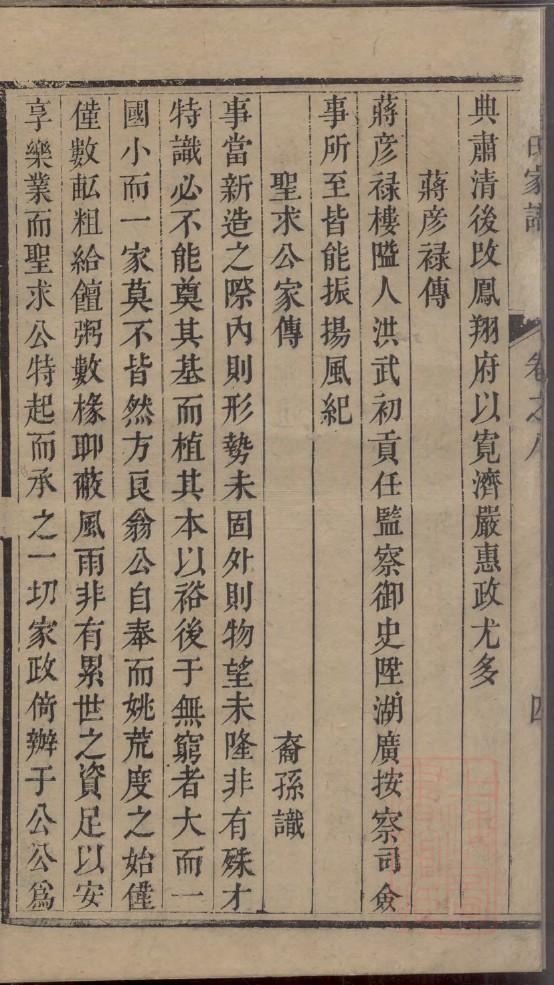 典肅清後改鳳翔府以寬濟嚴惠政尤多
蔣彦禄傳
蔣彦禄樓隘人洪武初貢任監察御史陞湖廣按察司僉
事所至皆能振揚風紀
聖求公家傳 裔孫識
事當新造之際內則形勢未固外則物望未隆非有殊才
特識必不能奠其基而植其本以裕後于無窮者大而一
國小而一家莫不皆然方艮翁公自奉而姚荒度之始僅
僅數畝粗給饘粥數椽聊蔽風雨非有累世之資足以安
享樂業而聖求公特起而承之一切家政倚辦于公公爲